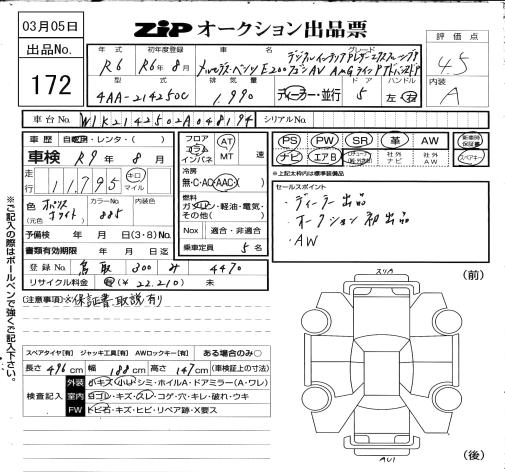 03月05日
ZIP オークション出品票
出品No.
172
年式 初年度登録 車名 グレード
R6 R6年8月 メルセデス・ベンツ E200
型式 排気量 ドア ハンドル
4AA-214250C 1,990 ディーラー・並行 5 左・右
評価点
4.5
内装
A
車台No. W1K2142502A048194 シリアルNo.
車歴 自家用・レンタ・( )
車検 R9年 8月
走行 11,795 キロ マイル
色 オパリスホワイト カラーNo. 885 内装色
(元色)
予備検 年 月 日(3・8)No.
書類有効期限 年 月 日
登録No. 鳥取 300 み 4470
リサイクル料金 有(¥22,210) 未
フロア コラム インパネ AT MT 速
冷房
無・C・AC・AAC( )
燃料
ガソリン・軽油・電気・その他( )
Nox 適合・非適合
乗車定員 5 名
PS PW SR 革 AW 新車時保証書
ナビ エアB 社外ナビ 社外AW スペアキー
※上記太枠内は標準装備品
セールスポイント
・ディーラー出品
・オークション初出品
・AW
(注意事項)※保証書・取説有り
※ご記入の際はボールペンで強くご記入下さい。
スペアタイヤ【有】 ジャッキ工具【有】 AWロックキー【有】 ある場合のみ○
長さ 496cm 幅 188cm 高さ 147cm (車検証上の寸法)
検査記入
外装 小キズ・小凹・シミ・ホイルA・ドアミラー(A・ワレ)
室内 ヨゴレ・キズ・スレ・コゲ・穴・キレ・破れ・ウキ
FW トビ石・キズ・ヒビ・リペア跡・X要ス
スリA
(前)
(後)